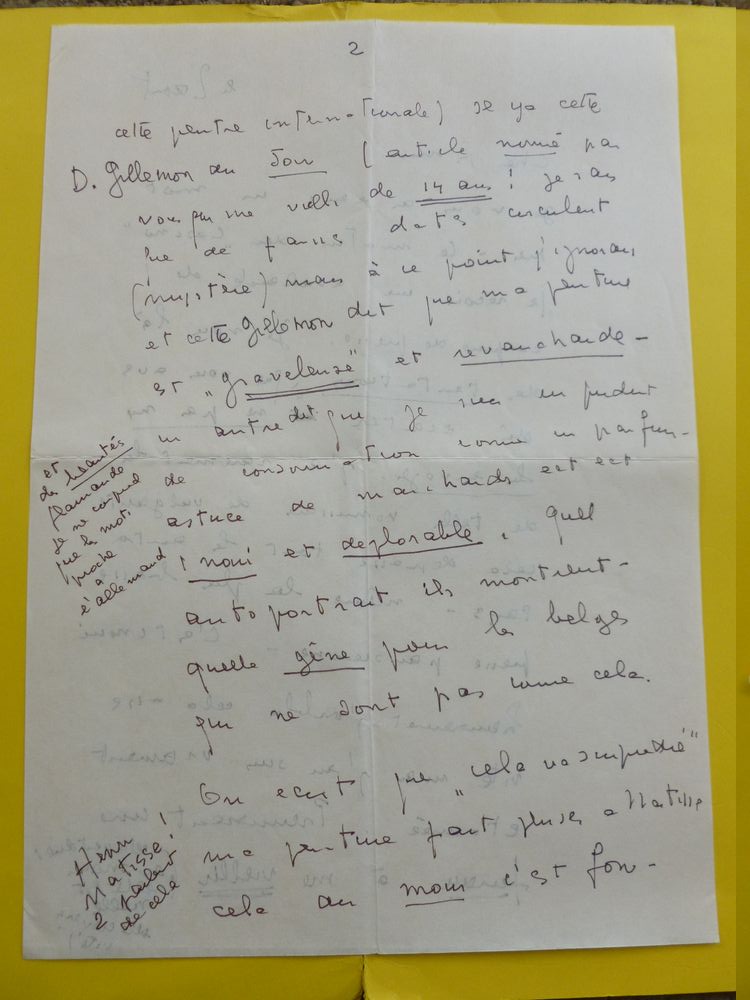 2
cette peintre internationale) il y a cette
D. Gillemon du Soir (article nommé par
vous qui me vieilli de 14 ans! je sais
que de fausses dates circulent
(mystère) mais à ce point j'ignorais,
et cette Gillemon dit que ma peinture
est "graveleuse" et revancharde -
un autre dit que je suis un produit
de consommation comme un parfum -
astuce de marchands est
et deplorable, quel
autoportrait ils montrent -
quelle gêne pour les belges
qui ne sont pas comme cela.
On écrit que "cela
ma peinture fait penser à Matisse
cela au moins c'est fon-
et
flamande
je ne comprend
que les mots
proche
à
l'allemand
Henri !
Matisse!
2 parlent
de cela